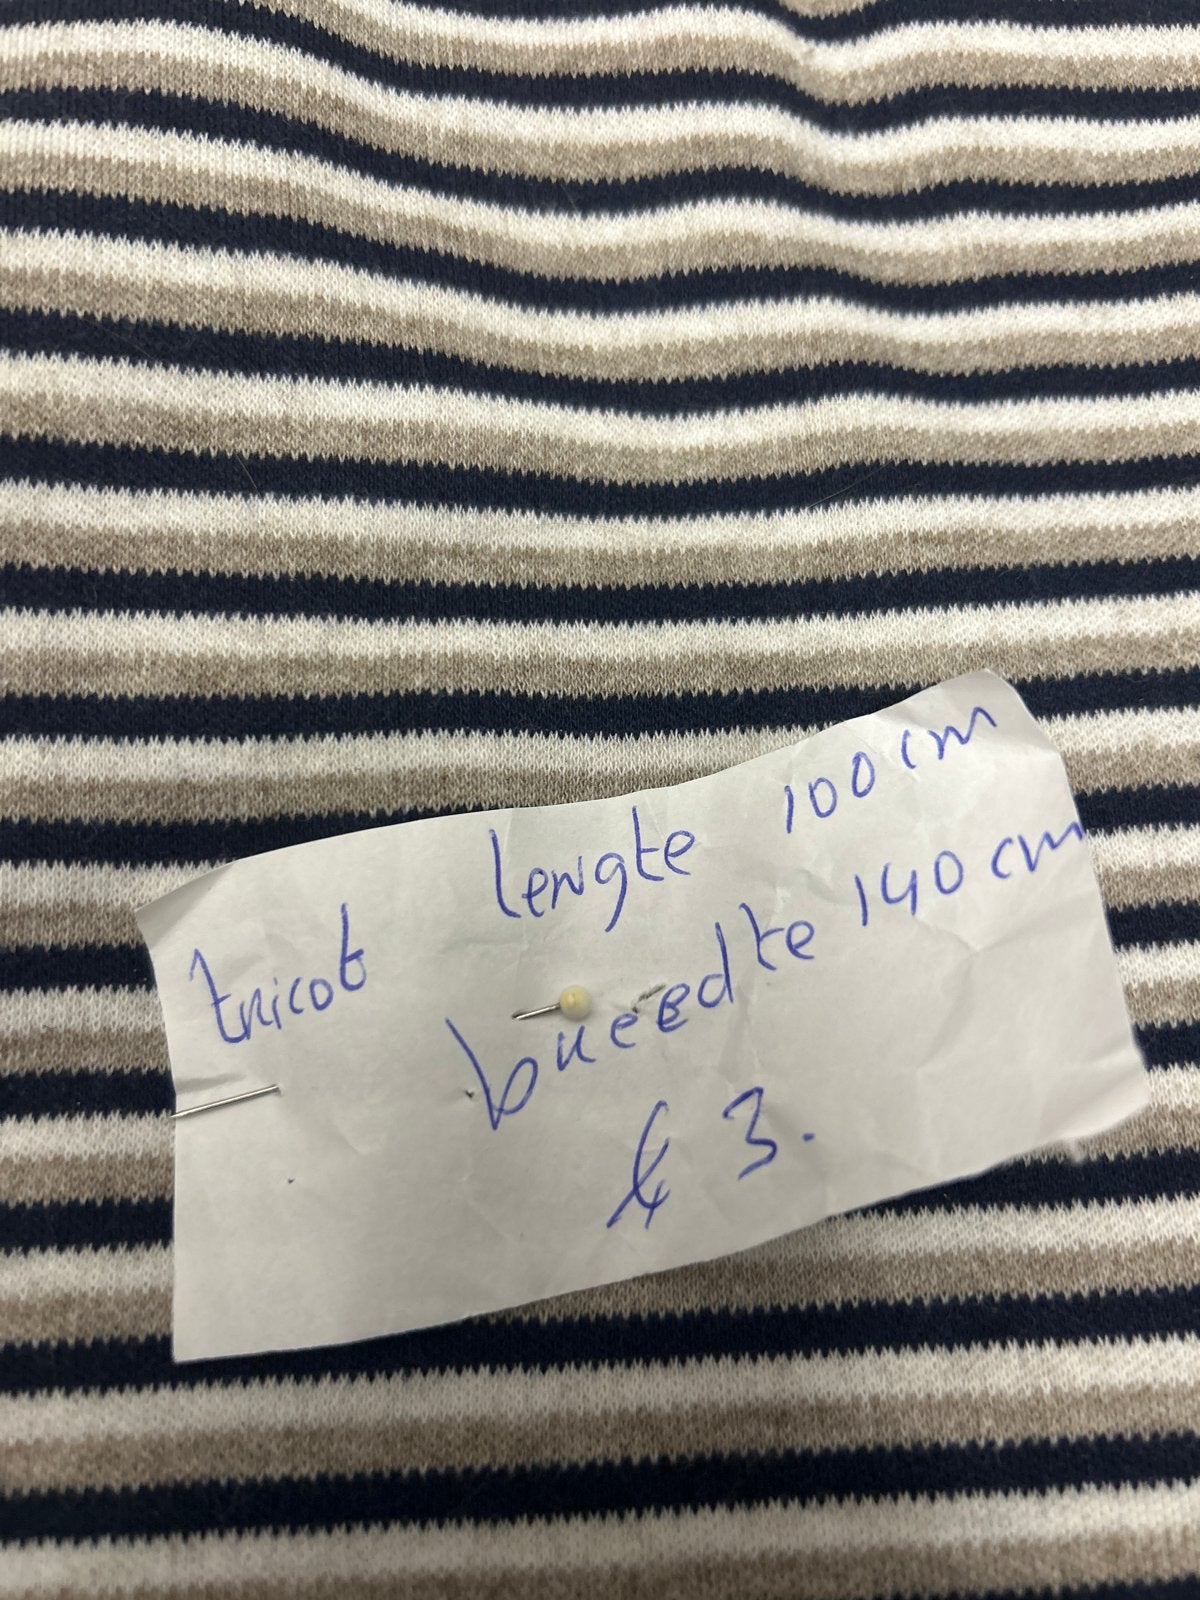 tricot lengte 100 cm
breedte 140 cm
€ 3.